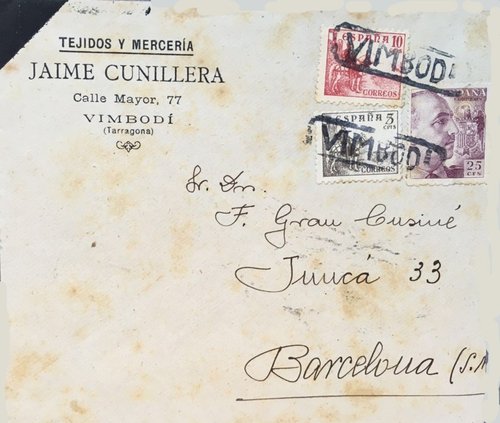 TEJIDOS Y MERCERÍA
JAIME CUNILLERA
Calle Mayor, 77
VIMBODÍ
(Tarragona)
ESPAÑA 10
CORREOS
VIMBODÍ
ESPAÑA 5
CTS
CORREOS
VIMBODÍ
ESPAÑA
CORREOS
25
CTS
Sr. Dn.
F. Grau Cusiné
Juncá 33
Barcelona (S.M